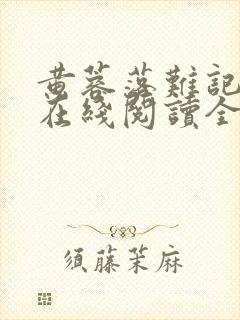 黄蓉落難記
在綫閱讀全
須藤茉麻